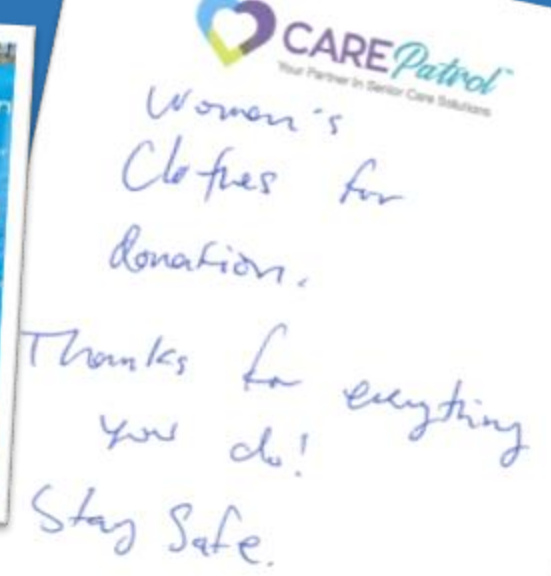 CAREPatrol
Your Partner in Senior Care Solutions
Women's
Clothes for
donation.
Thanks for everything
you do!
Stay Safe.